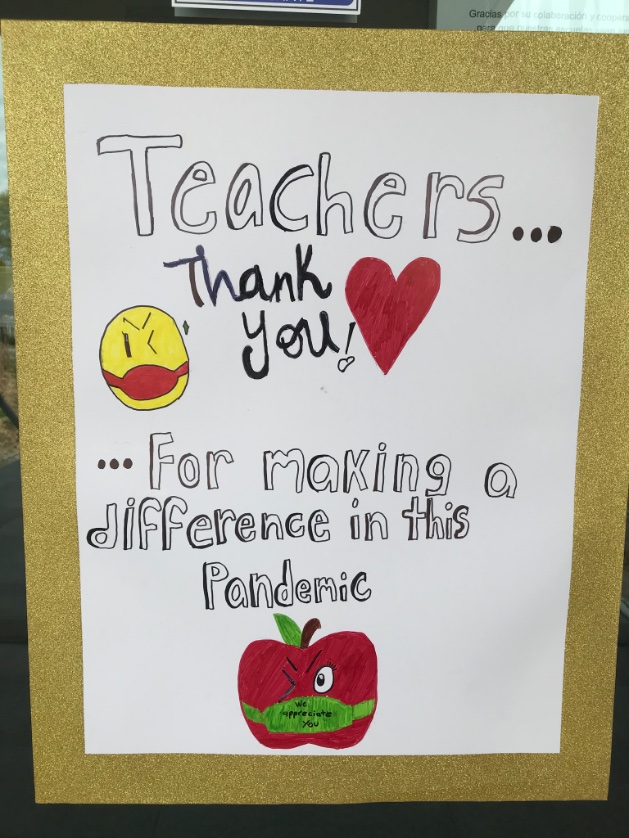 Gracias por su colaboración y
Teachers...
Thank
you!
... For making a
difference in this
Pandemic
We
appreciate
You